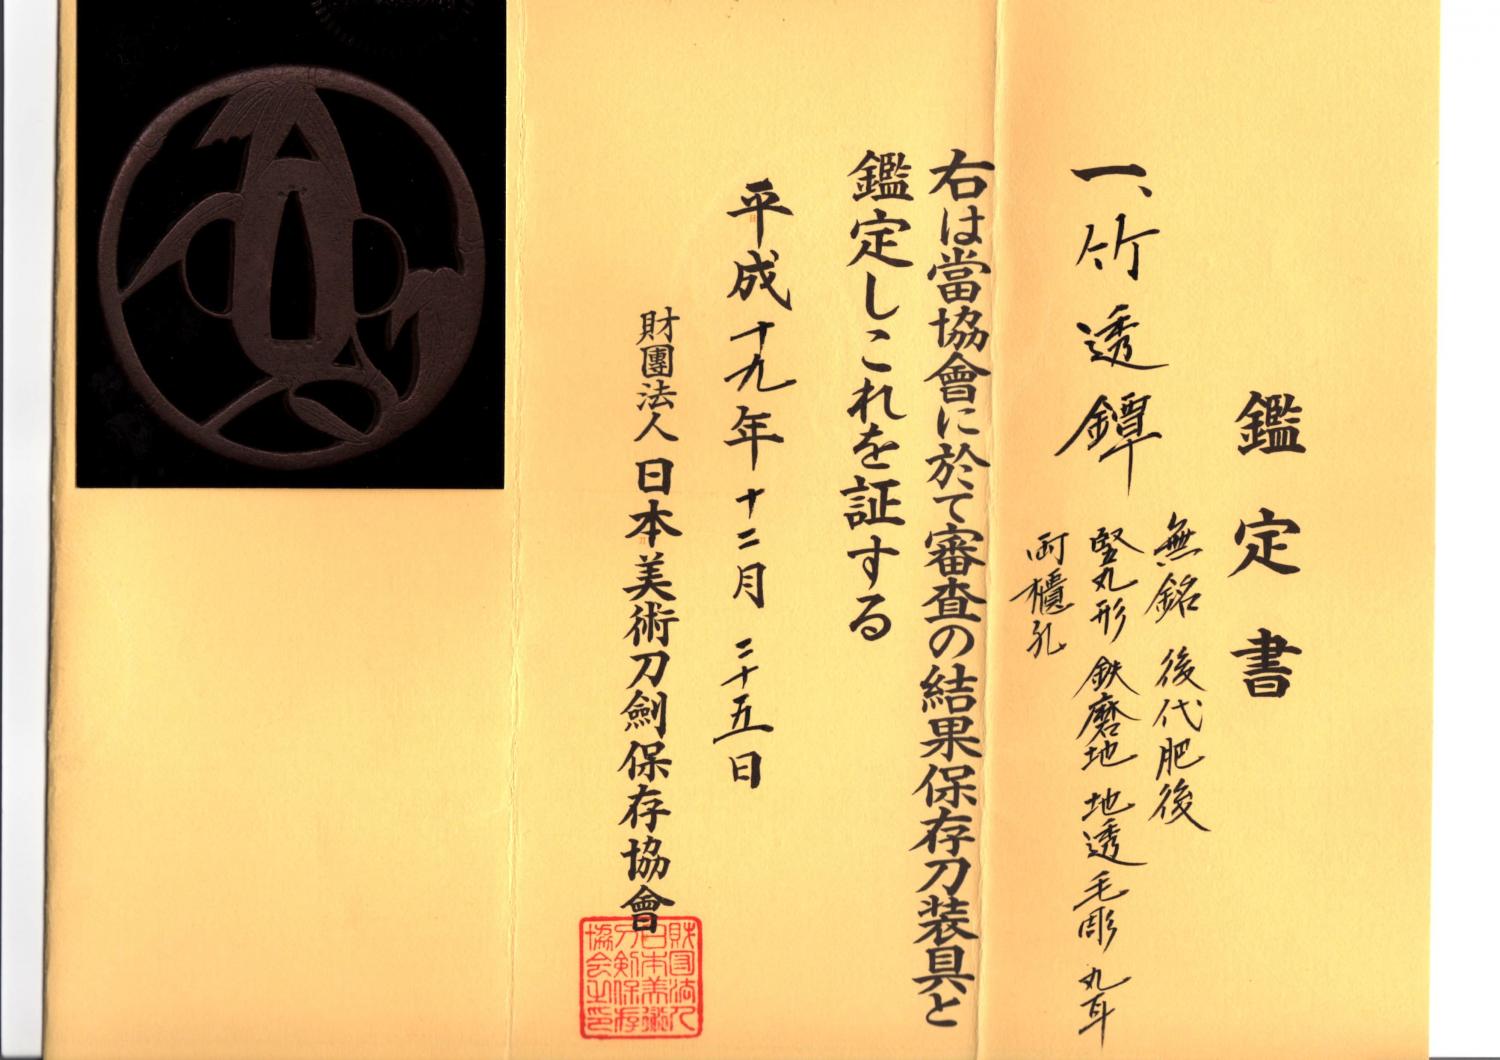 鑑定書
一、竹透鐔
無銘 後代肥後
竪丸形 鉄磨地 地透毛彫 丸耳
両櫃孔
右は當協會に於て審査の結果保存刀装具と
鑑定しこれを証する
平成十九年十二月二十五日
財團法人日本美術刀劍保存協會
財団法人
日本美術
刀剣保存
協会之印